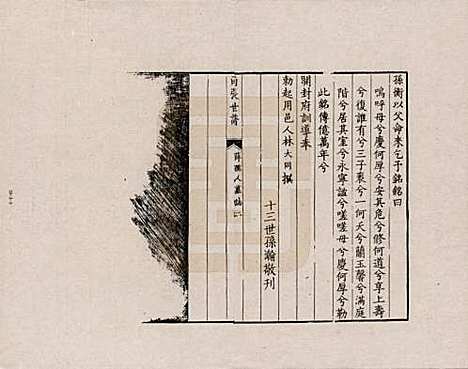 孫衡以父命来乞予銘銘曰
嗚呼母兮慶何厚兮安其危兮修何道兮享上壽
兮復誰有兮三子衷兮一何夭兮蘭玉馨兮滿庭
階兮居其室兮永寧謐兮嗟嗟母兮慶何厚兮勒
此銘傳億萬年兮
開封府訓導奉
勅起用邑人林大同撰
十三世孫瀚敬刊
張世譜